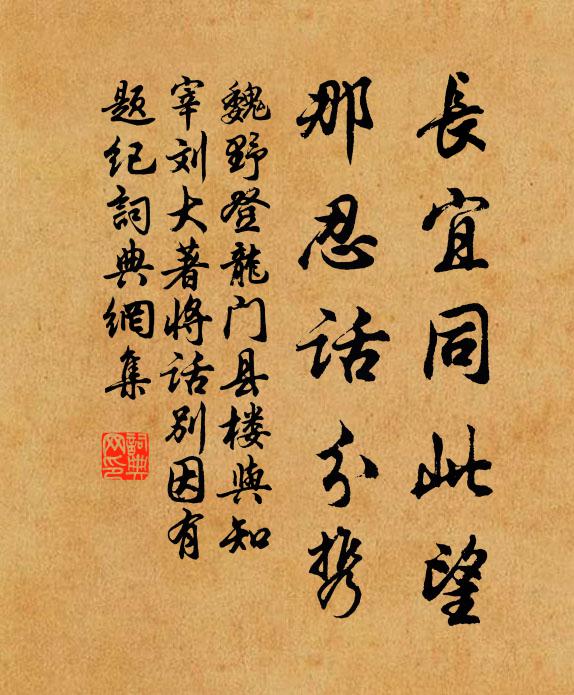 長宜同此望
那忍话分携
魏野登龍门县楼與知
宰刘大著将话别因有
题纪詞典網集
詞典网印